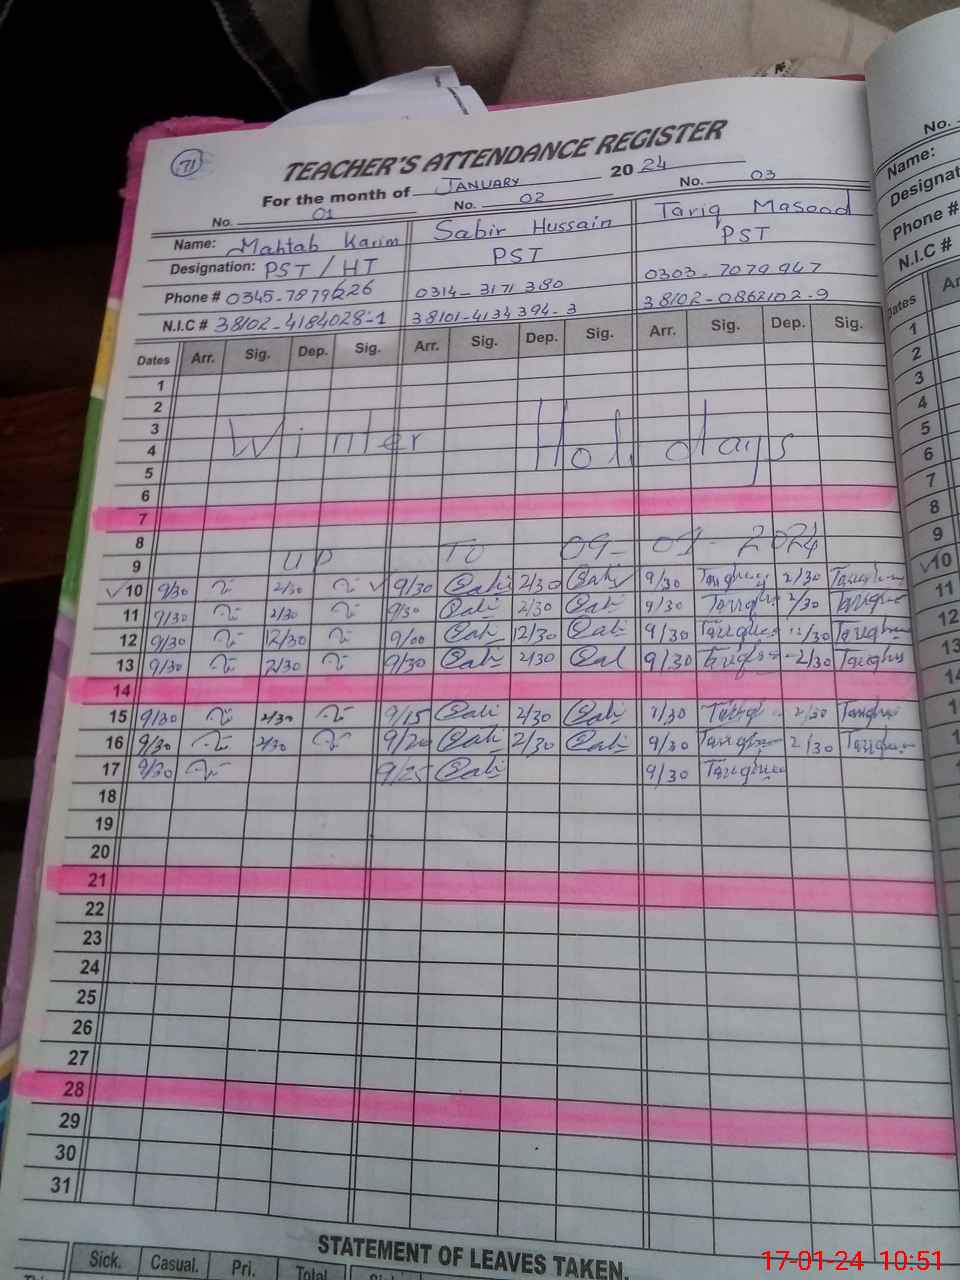 71
TEACHER'S ATTENDANCE REGISTER
For the month of JANUARY 2024
No. 01 No. 02 No. 03
Name: Mahtab Karim Sabir Hussain Tariq Masood
Designation: PST / HT PST PST
Phone # 0345-7879626 0314-3171380 0303-7079947
N.I.C # 38102-4184028-1 38101-4134394-3 38102-0862102-9
Dates Arr. Sig. Dep. Sig. Arr. Sig. Dep. Sig. Arr. Sig. Dep. Sig.
1
2
3
4 Winter Holidays
5
6
7
8
9 UP To 09-01-2024
10 9/30 2/30 9/30 2/30 9/30 2/30
11 9/30 2/30 9/30 2/30 9/30 2/30
12 9/30 12/30 9/00 12/30 9/30 12/30
13 9/30 2/30 9/30 2/30 9/30 2/30
14
15 9/30 2/30 9/15 2/30 9/30 2/30
16 9/30 2/30 9/20 2/30 9/30 2/30
17 9/30 9/25 9/30
18
19
20
21
22
23
24
25
26
27
28
29
30
31
STATEMENT OF LEAVES TAKEN.
Sick. Casual. Pri. Total
No.
Name:
Designat
Phone #
N.I.C #
Dates
1
2
3
4
5
6
7
8
9
10
11
12
13
17-01-24 10:51